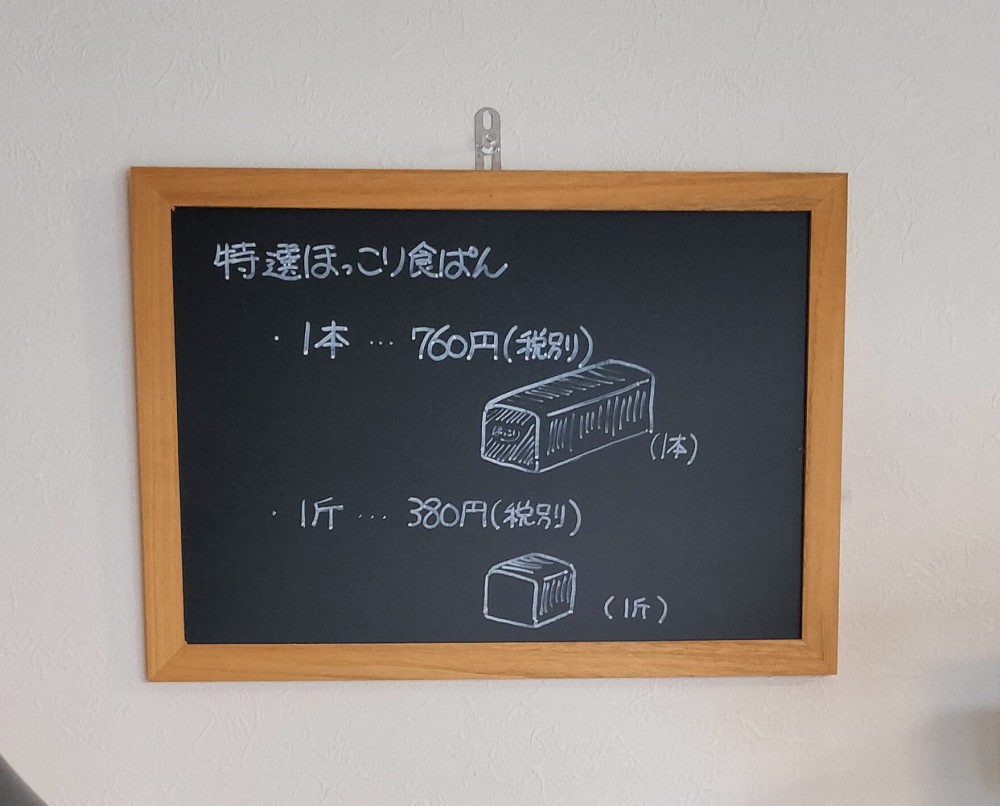 特選ほっこり食ぱん
・1本…760円(税別)
ほっこり
(1本)
・1斤…380円(税別)
(1斤)